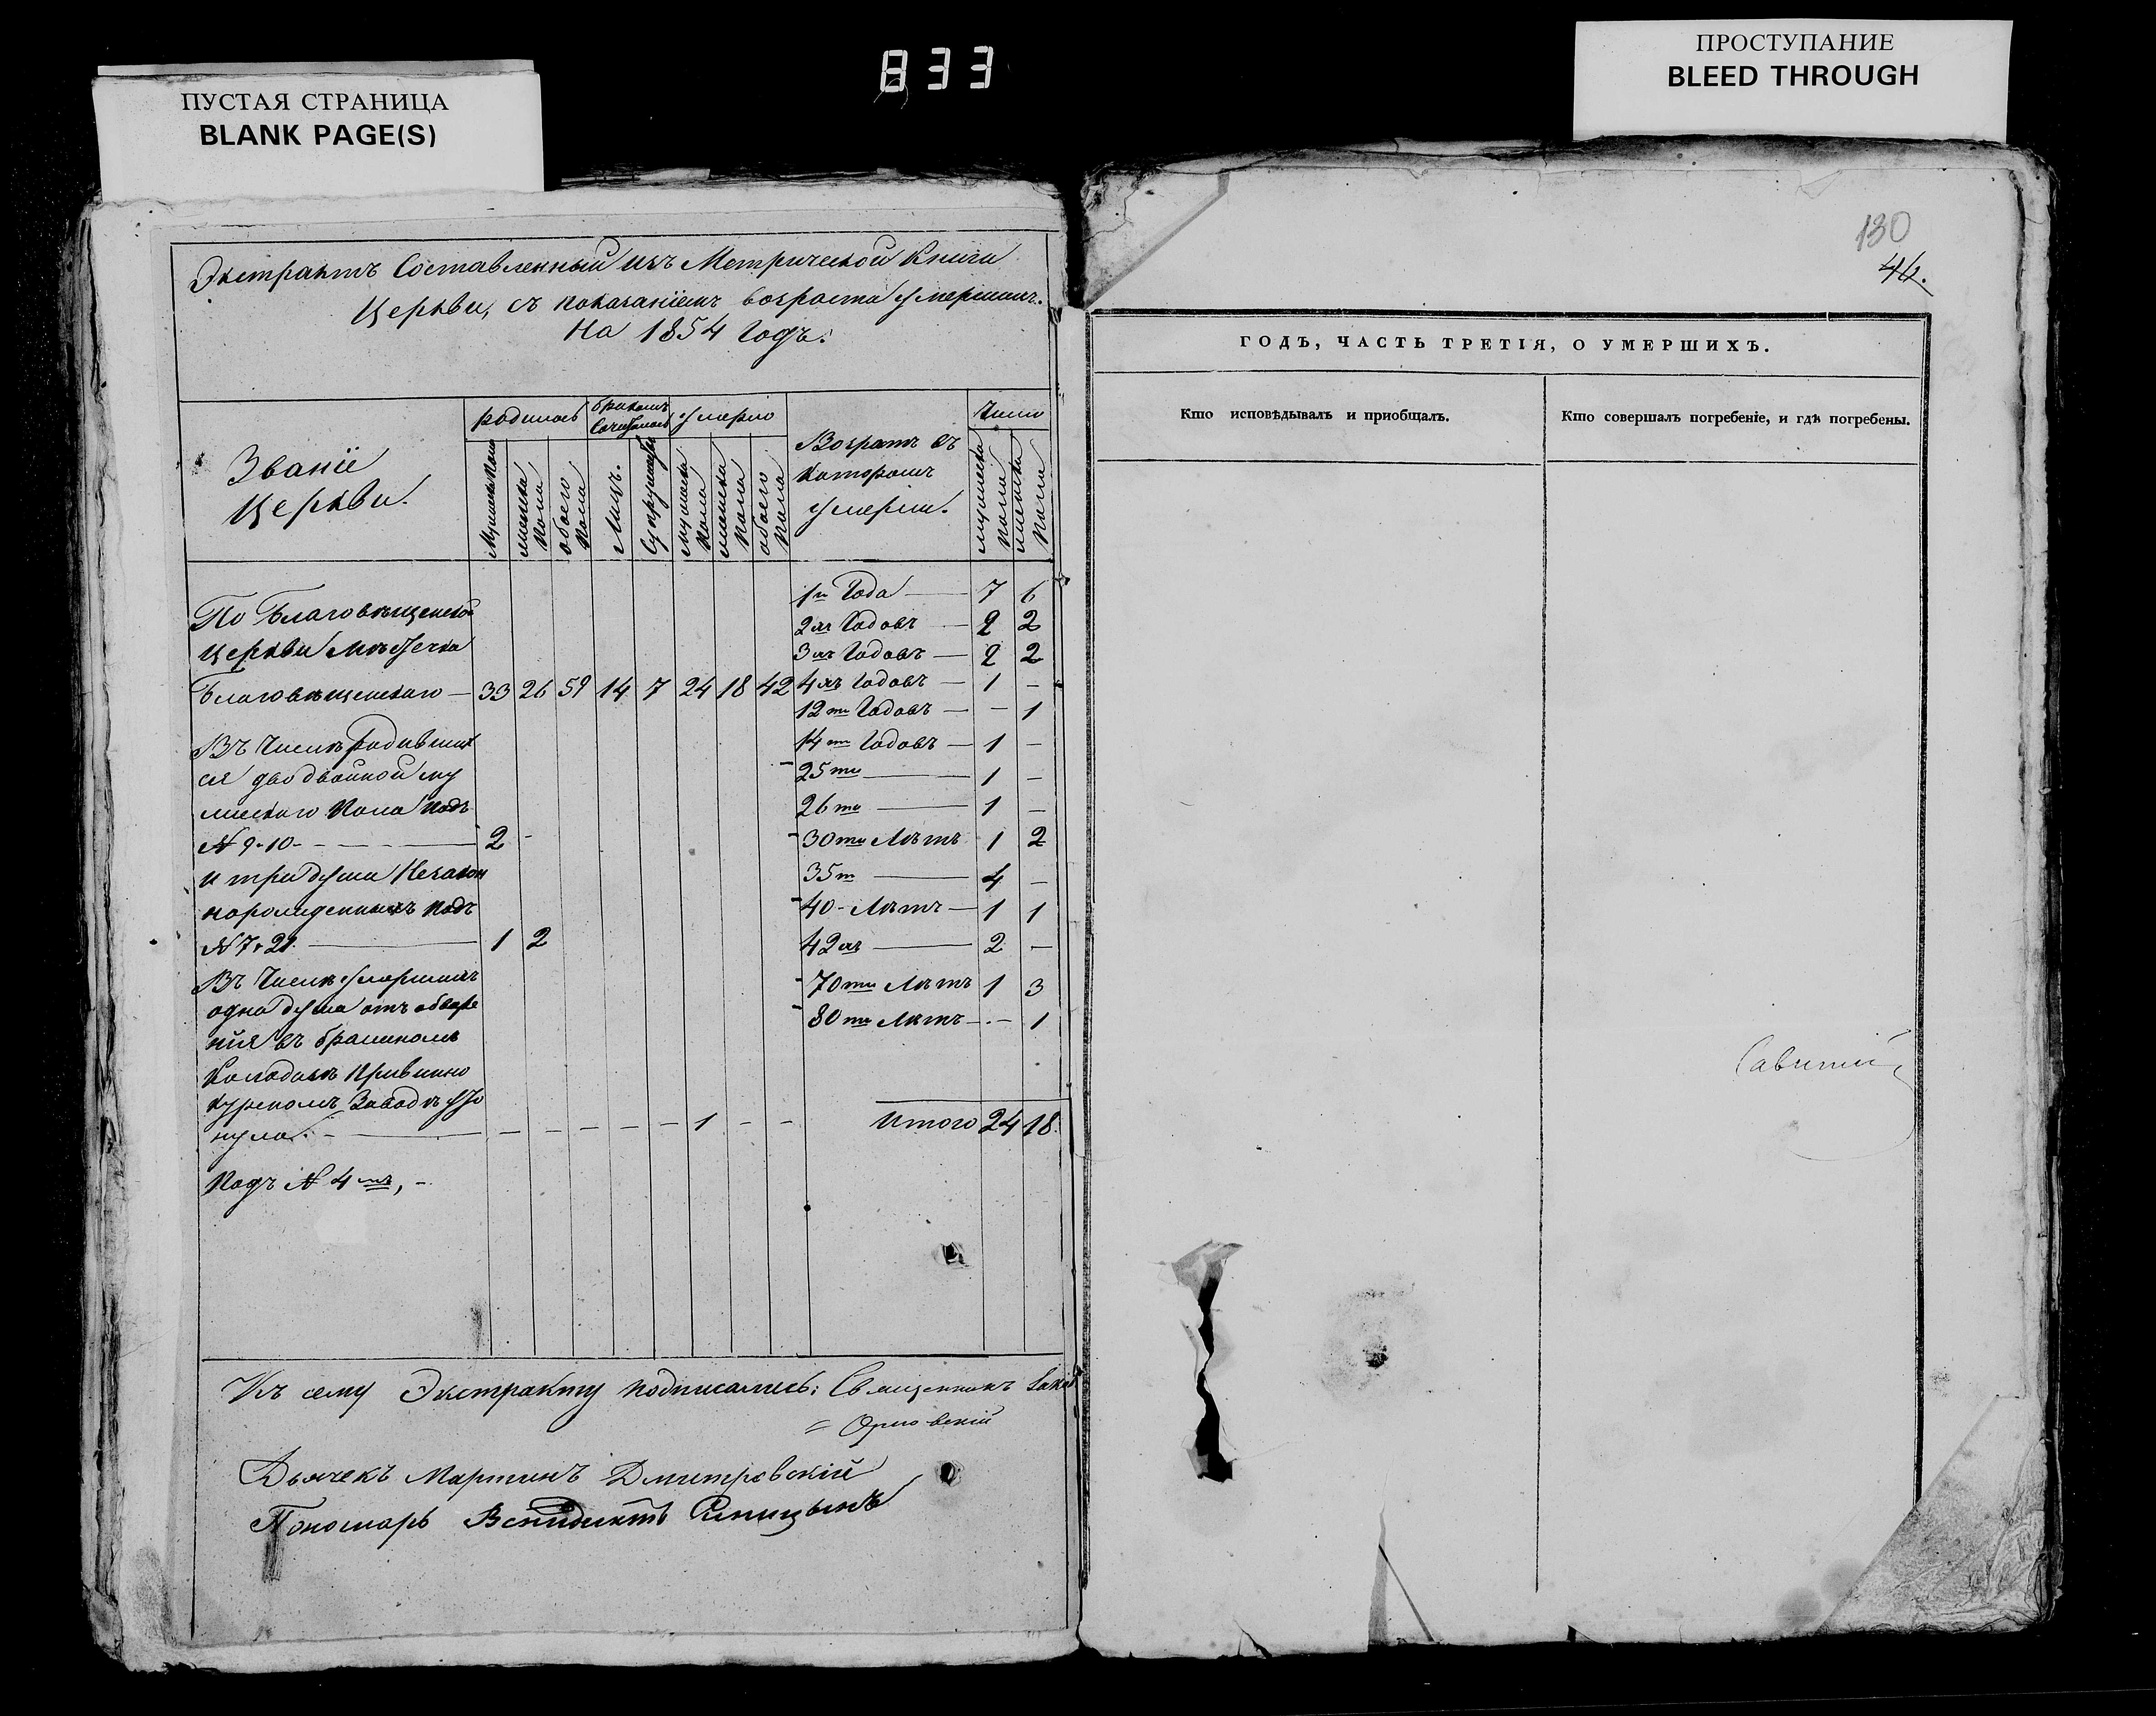 ПУСТАЯ СТРАНИЦА
BLANK PAGE(S)
833
ПРОСТУПАНИЕ
BLEED THROUGH
Экстрактъ Составленный изъ Метрической Книги
Церкви, съ показаніемъ возраста умершихъ.
На 1854 Годъ.
Званіе
Церкви.
родилось
бракомъ
умерло
Возрастъ въ
которомъ
умерли.
Число
Мужеска пола
женска пола
обоего пола
Лицъ.
Супружествъ
мужеска пола
женска пола
обоего пола
мужеска пола
женска пола
По Благовѣщенской
церкви Мѣстечка
Благовѣщенского — 33 26 59 14 7 24 18 42
Въ Числѣ родивших
ся двойной му
жескаго пола подъ
№ 9-10 — 2 -
и три души Незакон
норожденныхъ подъ
№ 7 21. — 1 2
Въ Числѣ умершихъ
одна душа отъ обваре
нія въ бражномъ
Колодязѣ при винно
куренномъ Заводѣ уто
нула. — 1 - -
Подъ № 4мъ, -
1го Года — 7 6
2хъ Годовъ — 2 2
3хъ Годовъ — 2 2
4хъ Годовъ — 1 -
12ти Годовъ — - 1
14ти Годовъ — 1 -
25ти — 1 -
26ти — 1 -
30ти Лѣтъ 1 2
35ти — 4 -
40 - Лѣтъ — 1 1
42хъ — 2 -
70ти Лѣтъ 1 3
80ти Лѣтъ - 1
Итого 24 18.
Къ сему Экстракту подписались: Священникъ
= Орловскій
Дьячекъ Мартинъ Дмитровскій
Пономарь Венидиктъ Синицынъ
130
44.
ГОДЪ, ЧАСТЬ ТРЕТІЯ, О УМЕРШИХЪ.
Кто исповѣдывалъ и пріобщалъ.
Кто совершалъ погребеніе, и гдѣ погребены.